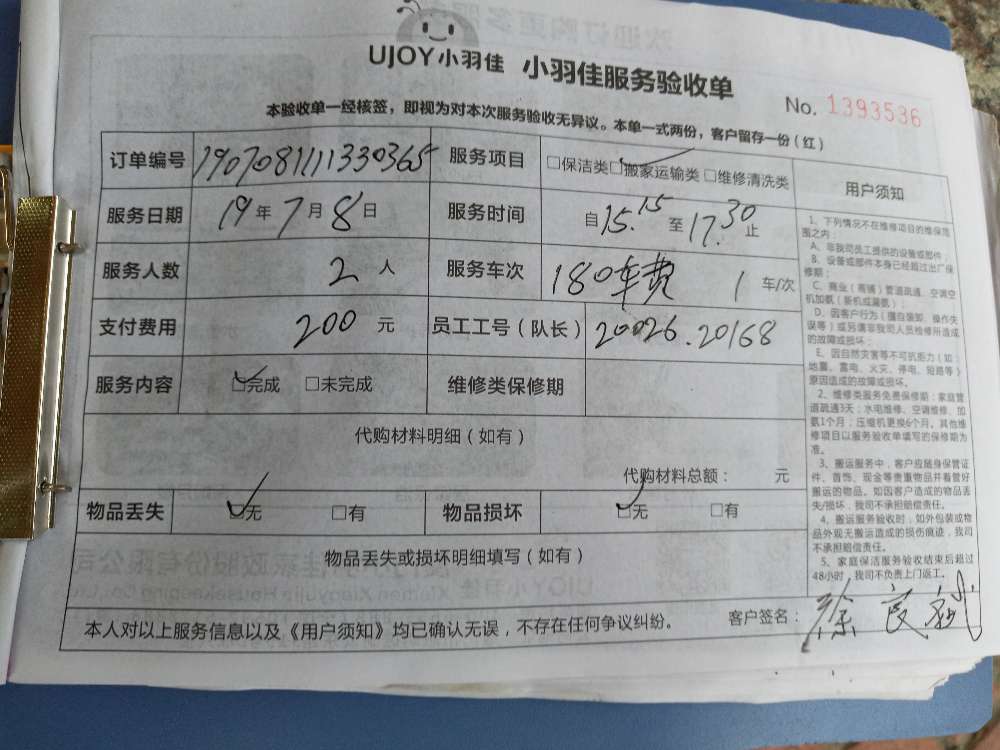 UJOY小羽佳 小羽佳服务验收单
No. 1393536
本验收单一经核签，即视为对本次服务验收无异议。本单一式两份，客户留存一份（红）
订单编号 1907081111330365 服务项目 □保洁类 ☑搬家运输类 □维修清洗类
服务日期 19年7月8日 服务时间 自15.15至17.30止
服务人数 2人 服务车次 180车费 1车/次
支付费用 200元 员工工号（队长） 20026.20168
服务内容 ☑完成 □未完成 维修类保修期
代购材料明细（如有）
代购材料总额： 元
物品丢失 ☑无 □有 物品损坏 ☑无 □有
物品丢失或损坏明细填写（如有）
本人对以上服务信息以及《用户须知》均已确认无误，不存在任何争议纠纷。 客户签名：徐良斌
用户须知
1、下列情况不在维修项目的维保范
围之内：
A、非我司员工提供的设备或部件；
B、设备或部件本身已经超过出厂保
修期；
C、商业（商铺）管道疏通、空调空
机加氨（新机或漏氨）；
D、因客户行为（擅自装卸、操作失
误等）或另请非我司人员检修所造成
的故障或损坏；
E、因自然灾害等不可抗拒力（如：
地震、雷电、火灾、停电、短路等）
原因造成的故障或损坏。
2、维修类服务免费保修期：家庭管
道疏通3天；水电维修、空调维修、加
氨1个月；压缩机更换6个月。其他维
修项目以服务验收单填写的保修期为
准。
3、搬运服务中，客户应随身保管证
件、首饰、现金等贵重物品并看管好
搬运的物品。如因客户造成的物品丢
失/损坏，我司不承担赔偿责任。
4、搬运服务验收时，如外包装或物
品外观无搬运造成的损伤痕迹，我司
不承担赔偿责任。
5、家庭保洁服务验收结束后超过
48小时，我司不负责上门返工。